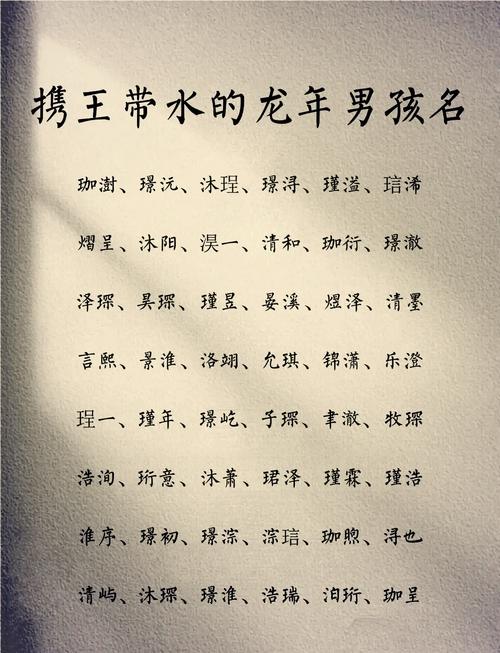 携王带水的龙年男孩名
珈澍、璟沅、沐珵、璟浔、瑾溢、琂浠
熠呈、沐阳、淏一、清和、珈衍、璟澈
泽琛、昊琛、瑾昱、晏溪、煜泽、清墨
言熙、景淮、洛翊、允琪、锦潇、乐澄
珵一、瑾年、璟屹、子琛、聿澈、牧琛
浩洵、珩意、沐萧、珺泽、瑾霖、瑾浩
淮序、璟初、璟淙、淙琂、珈煦、浔也
清屿、沐琛、璟淮、浩瑞、洎珩、珈呈